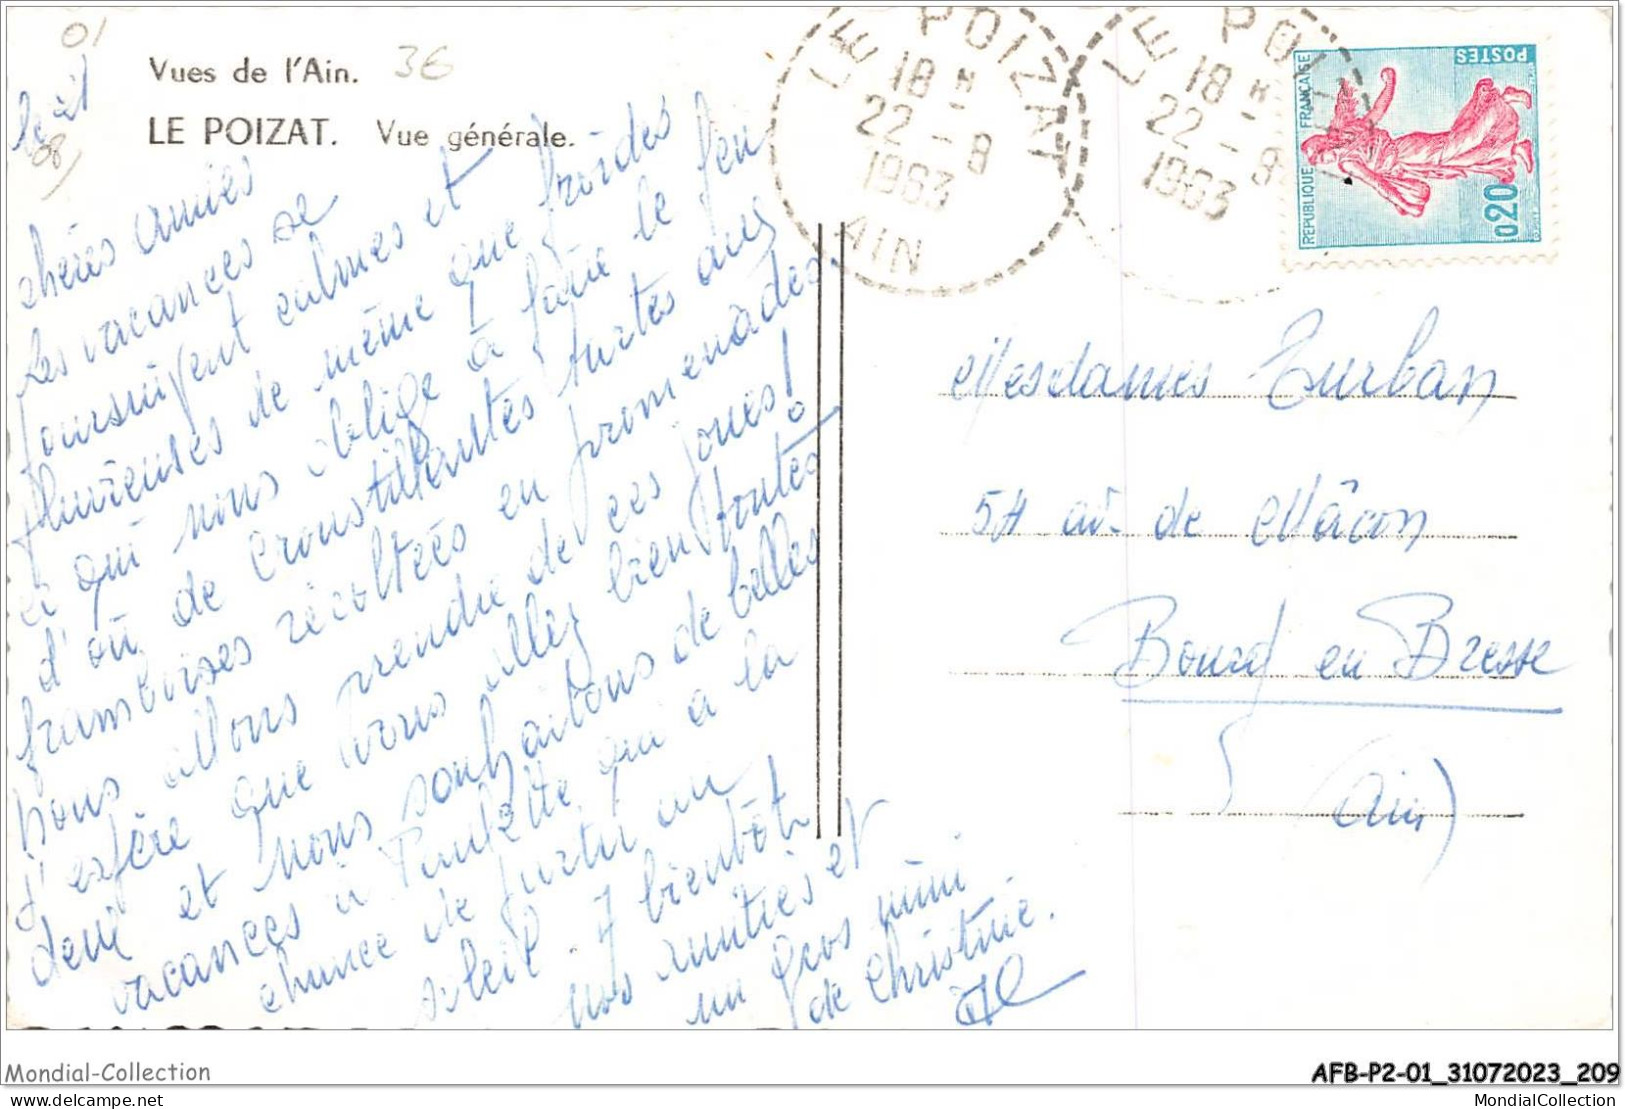 01
Vues de l'Ain. 36
LE POIZAT. Vue générale.
le 21
08
chères amies
Les vacances se
poursuivent calmes et
pluvieuses de même que froides
ce qui nous oblige à faire le feu
d'où de croustillantes tartes aux
framboises récoltées en promenades.
nous allons prendre de ces joues!
J'espère que vous allez bien toutes
deux et nous souhaitons de belles
vacances à Paulette qui a la
chance de partir au
soleil. A bientôt
nos amitiés et
un gros mimi
de Christine.
LE POIZAT
18 H
22 - 8
1963
AIN
LE POIZAT
18 H
22 - 8
1963
REPUBLIQUE FRANÇAISE
POSTES
0,20
Mesdames Turban
54 av. de Mâcon
Bourg en Bresse
(Ain)
Mondial-Collection
AFB-P2-01_31072023_209
delcampe.net
MondialCollection